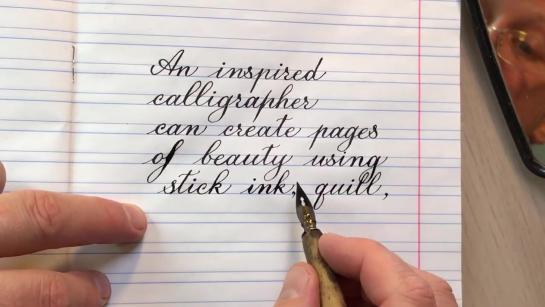 An inspired
calligrapher
can create pages
of beauty using
stick ink, quill,